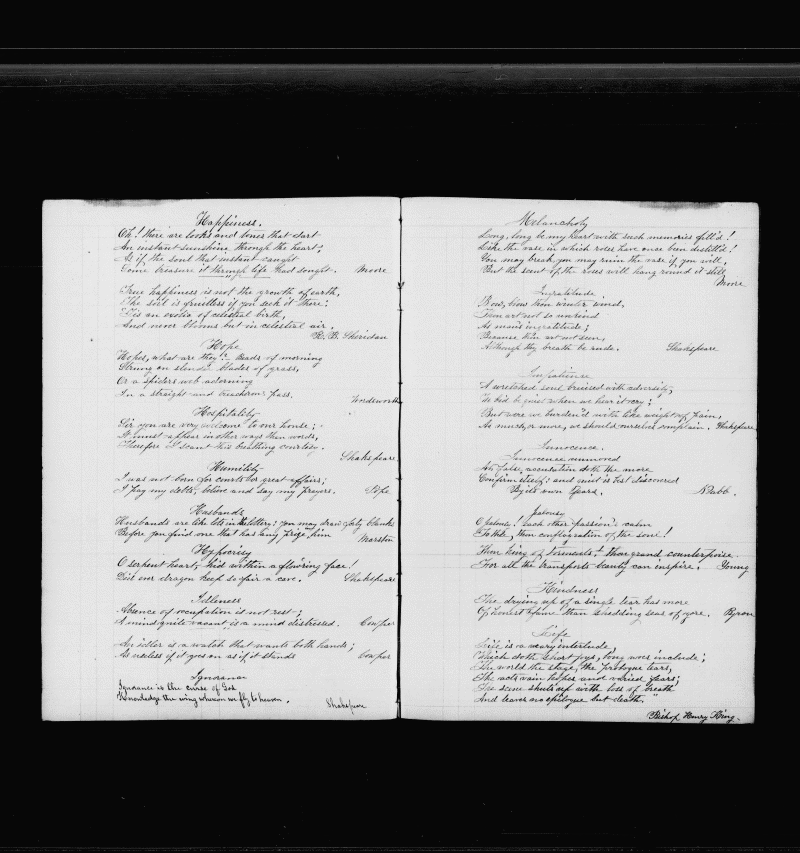 Happiness.
Oh! there are looks and tones that dart
An instant sunshine, through the heart;
As if the soul that instant caught
Some treasure it through life had sought. Moore
True happiness is not the growth of earth,
The soil is fruitless if you seek it there:
'Tis an exotic of celestial birth,
And never blooms but in celestial air.
R. B. Sheridan
Hope
Hopes, what are they? - Beads of morning
Strung on slender blades of grass,
Or a spiders web adorning
In a straight and treacherous pass.
Wordsworth
Hospitality
Sir you are very welcome to our house;
It must appear in other ways than words,
Therefore I scant this breathing courtesy.
Shakspeare
Humility
I was not born for courts or great affairs;
I pay my debts, believe and say my prayers. Pope
Husbands
Husbands are like lots in the lottery; you may draw forty blanks
Before you find one that has any prize in him
Marston
Hypocrisy
O serpent heart, hid within a flowering face!
Did ever dragon keep so fair a cave. Shakspeare
Idleness
Absence of occupation is not rest;
A mind quite vacant is a mind distressed. Cowper
An idler is a watch that wants both hands;
As useless if it goes on as if it stands Cowper
Ignorance
Ignorance is the curse of God
Knowledge the wing wherein we fly to heaven.
Shakspeare
Melancholy
Long, long be my heart with such memories fill'd!
Like the vase in which roses have once been distill'd!
You may break, you may ruin the vase if you will,
But the scent of the roses will hang round it still
Moore
Ingratitude
Blow, blow thou winter wind,
Thou art not so unkind
As man's ingratitude;
Because thou art not seen,
Although thy breath be rude. Shakspeare
Impatience
A wretched soul bruised with adversity,
We bid be quiet when we hear it cry;
But were we burden'd with like weight of pain,
As much, or more, we should ourselves complain. Shakspeare
Innocence.
Innocence unmoved
At false accusation doth the more
Confirm itself; and guilt is best discovered
By its own fears. Nabb.
Jealousy
O jealousy! Each other passion's calm
To thee, thou conflagration of the soul!
Thou king of torments! thou grand counterpoise
For all the transports beauty can inspire. Young
Kindness
The drying up of a single tear has more
Of honest fame than shedding seas of gore. Byron
Life
Life is a weary interlude,
Which doth short joys, long woes include;
The world the stage, the prologue tears,
The acts vain hopes and varied fears;
The scene shuts up with loss of breath
And leaves no epilogue but death."
Bishop Henry King.